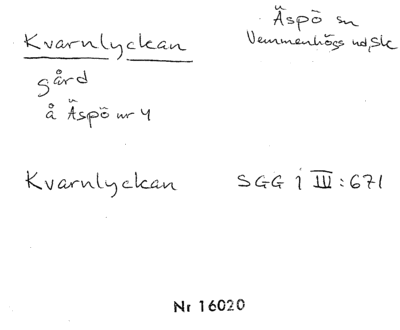 Kvarnlyckan
Äspö sn
Vemmenhögs hd, Sk
gård
å Äspö nr 4
Kvarnlyckan SGG i III:671
Nr 16020